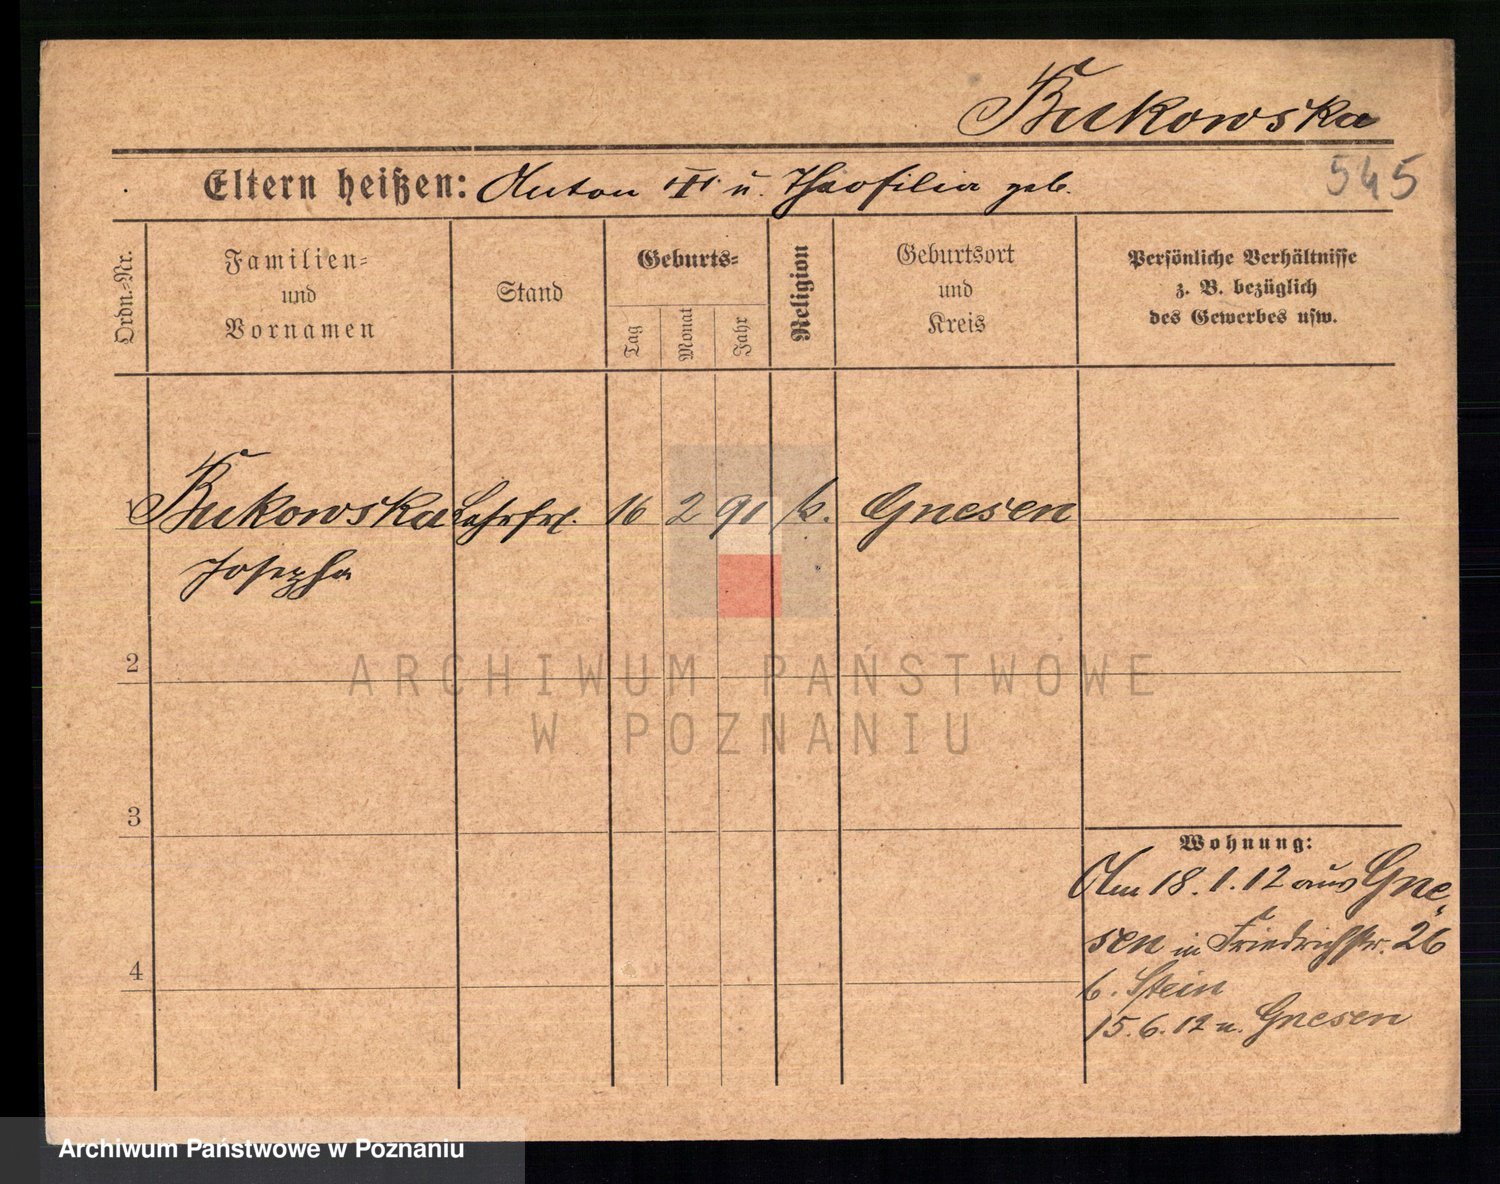 Bukowska
545
Eltern heißen: Anton III u. Theofilia geb.
Ordn.-Nr.
Familien-
und
Vornamen
Stand
Geburts-
Tag
Monat
Jahr
Religion
Geburtsort
und
Kreis
Persönliche Verhältnisse
z. B. bezüglich
des Gewerbes usw.
Bukowska Lehrfrl. 16 2 90 k. Gnesen
Josepha
2
3
4
Wohnung:
Am 18.1.12 aus Gne-
sen in Friedrichstr. 26
b. Stein
15.6.12 n. Gnesen
ARCHIWUM PAŃSTWOWE
W POZNANIU
Archiwum Państwowe w Poznaniu